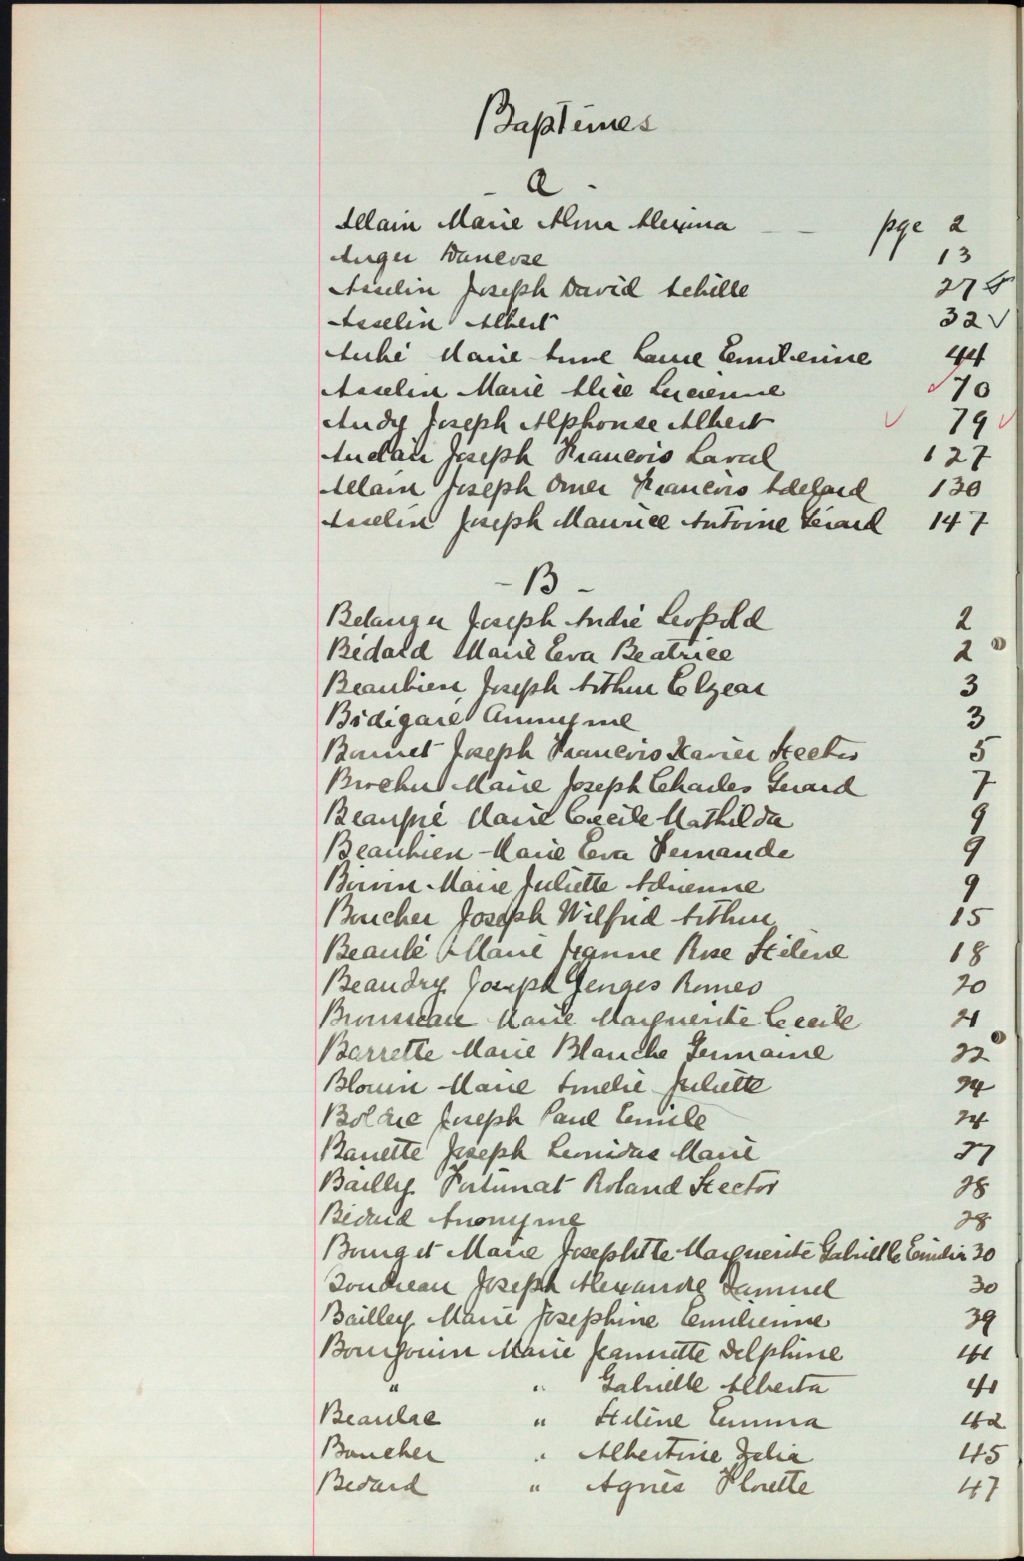 Baptêmes
- A -
Allain Marie Alma Alexina - - pge 2
Auger Dancose 13
Asselin Joseph David Achille 27
Asselin Albert 32 ✓
Aubé Marie Anne Laure Emilienne 44
Asselin Marie Alice Lucienne 70
Audy Joseph Alphonse Albert 79
Auclair Joseph Francois Laval 127
Allain Joseph Omer Francois Adelard 130
Asselin Joseph Maurice Antoine Gérard 147
- B -
Belanger Joseph André Leopold 2
Bédard Marie Eva Beatrice 2
Beaubien Joseph Arthur Elzear 3
Bidégaré Anonyme 3
Bonnet Joseph Francois Xavier Hector 5
Brochu Marie Joseph Charles Gerard 7
Beaupré Marie Cecile Mathilda 9
Beaubien Marie Eva Fernande 9
Boivin Marie Juliette Adrienne 9
Boucher Joseph Wilfrid Arthur 15
Beaulé Marie Jeanne Rose Hélène 18
Beaudry Joseph Georges Romeo 20
Brousseau Marie Marguerite Cecile 21
Barrette Marie Blanche Germaine 22
Blouin Marie Amelie Juliette 24
Bolduc Joseph Paul Emile 24
Barrette Joseph Leonidas Marie 27
Bailly Fortunat Roland Hector 28
Bédard Anonyme 28
Bourget Marie Josephtte Marguerite Gabrielle Emilia 30
Boudreau Joseph Alexandre Samuel 30
Bailley Marie Josephine Emilienne 39
Bourgouin Marie Jeannette Delphine 41
" " Gabrielle Alberta 41
Beaulac " Hélène Emma 42
Boucher " Albertine Zelia 45
Bedard " Agnès Florette 47